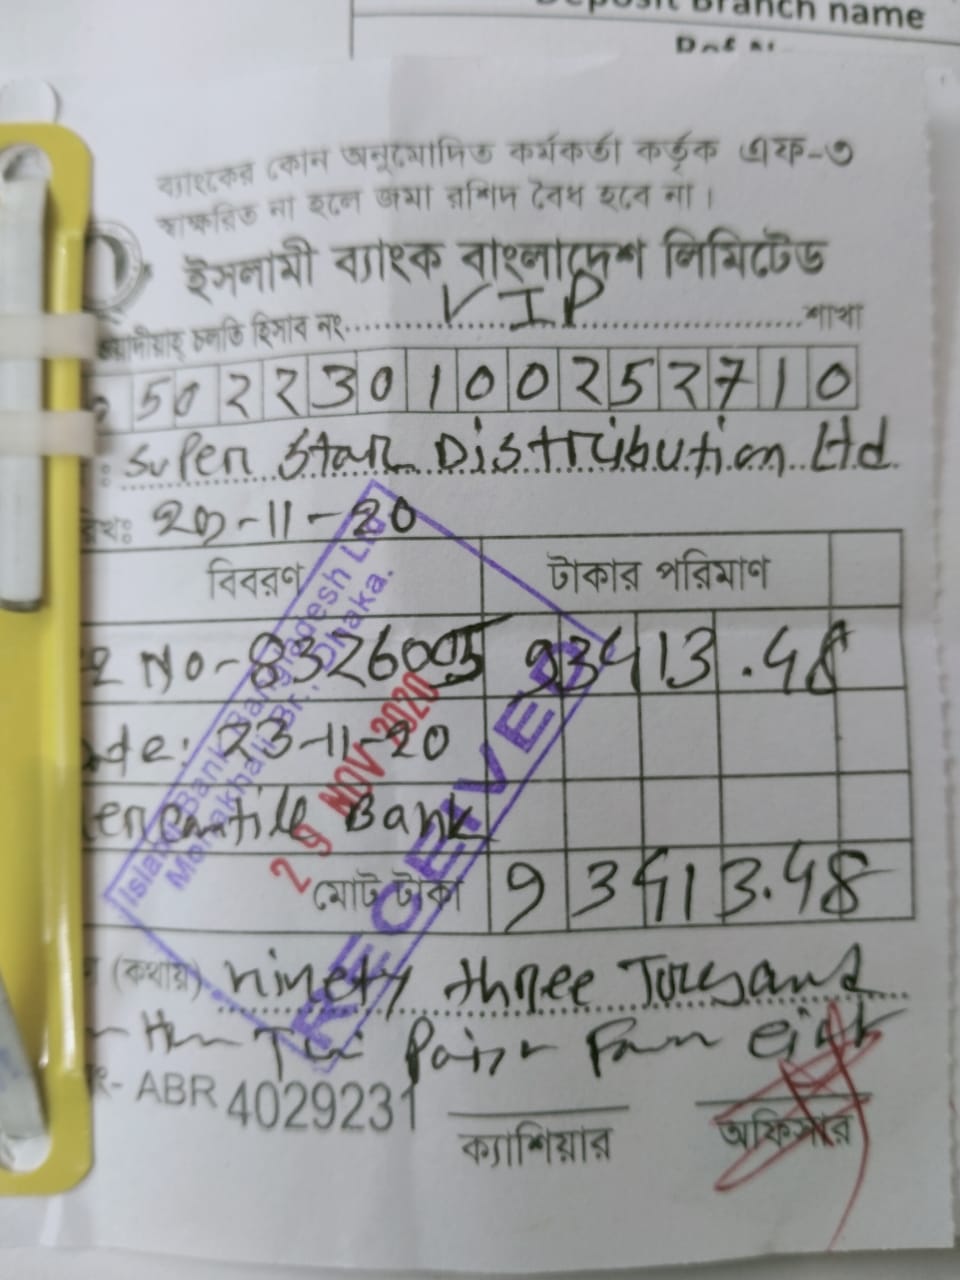 Deposit Branch name
ব্যাংকের কোন অনুমোদিত কর্মকর্তা কর্তৃক এফ-৩
স্বাক্ষরিত না হলে জমা রশিদ বৈধ হবে না।
ইসলামী ব্যাংক বাংলাদেশ লিমিটেড
চলতি হিসাব নং VIP শাখা
50 2 2 3 0 1 0 0 2 5 2 7 1 0
Super Star Distribution Ltd.
-11-20
বিবরণ টাকার পরিমাণ
No-8326005 93413.48
23-11-20
Bank
মোট টাকা 93413.48
(কথায়) ninety three
ABR 4029231
ক্যাশিয়ার অফিসার
Islami Bank Bangladesh Ltd
Mohakhali Br., Dhaka.
29 NOV 2020
RECEIVED